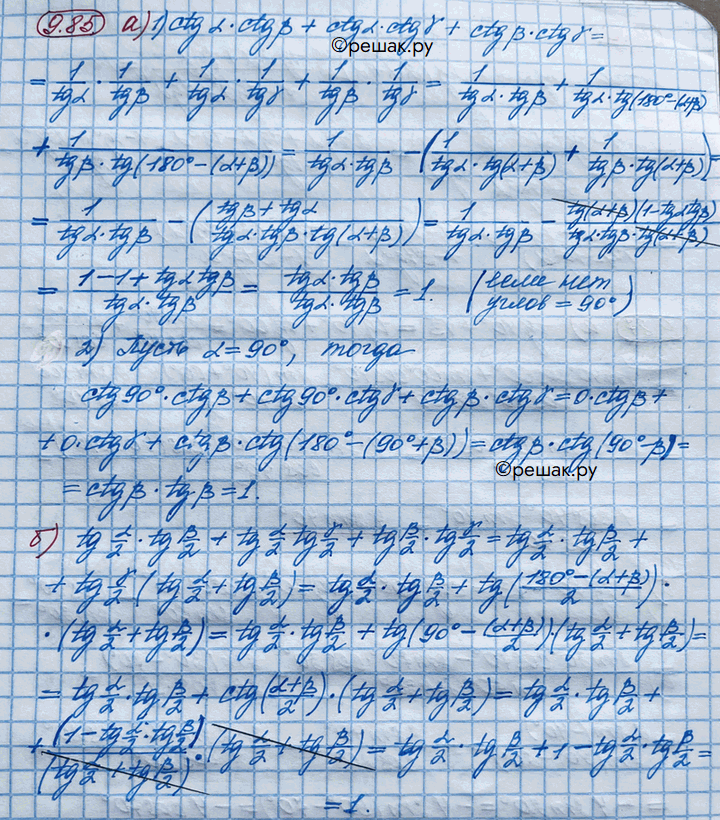 9.85 а) 1) ctg α · ctg β + ctg α · ctg γ + ctg β · ctg γ =
©решак.ру
= 1/(tg α) · 1/(tg β) + 1/(tg α) · 1/(tg γ) + 1/(tg β) · 1/(tg γ) = 1/(tg α · tg β) + 1/(tg α · tg(180° - (α+β)))
+ 1/(tg β · tg(180° - (α+β))) = 1/(tg α · tg β) - (1/(tg α · tg(α+β)) + 1/(tg β · tg(α+β))) =
= 1/(tg α · tg β) - ((tg β + tg α)/(tg α · tg β · tg(α+β))) = 1/(tg α · tg β) - (tg(α+β)(1 - tg α tg β))/(tg α · tg β · tg(α+β))
= (1 - 1 + tg α tg β)/(tg α · tg β) = (tg α · tg β)/(tg α · tg β) = 1. (если нет
углов = 90°)
2) Пусть α = 90°, тогда
ctg 90° · ctg β + ctg 90° · ctg γ + ctg β · ctg γ = 0 · ctg β +
+ 0 · ctg γ + ctg β · ctg(180° - (90° + β)) = ctg β · ctg(90° - β) =
©решак.ру
= ctg β · tg β = 1.
б) tg α/2 · tg β/2 + tg α/2 tg γ/2 + tg β/2 · tg γ/2 = tg α/2 · tg β/2 +
+ tg γ/2 (tg α/2 + tg β/2) = tg α/2 · tg β/2 + tg((180° - (α+β))/2) ·
· (tg α/2 + tg β/2) = tg α/2 · tg β/2 + tg(90° - (α+β)/2) · (tg α/2 + tg β/2) =
= tg α/2 · tg β/2 + ctg((α+β)/2) · (tg α/2 + tg β/2) = tg α/2 · tg β/2 +
+ (1 - tg α/2 · tg β/2)/(tg α/2 + tg β/2) · (tg α/2 + tg β/2) = tg α/2 · tg β/2 + 1 - tg α/2 · tg β/2 =
= 1.